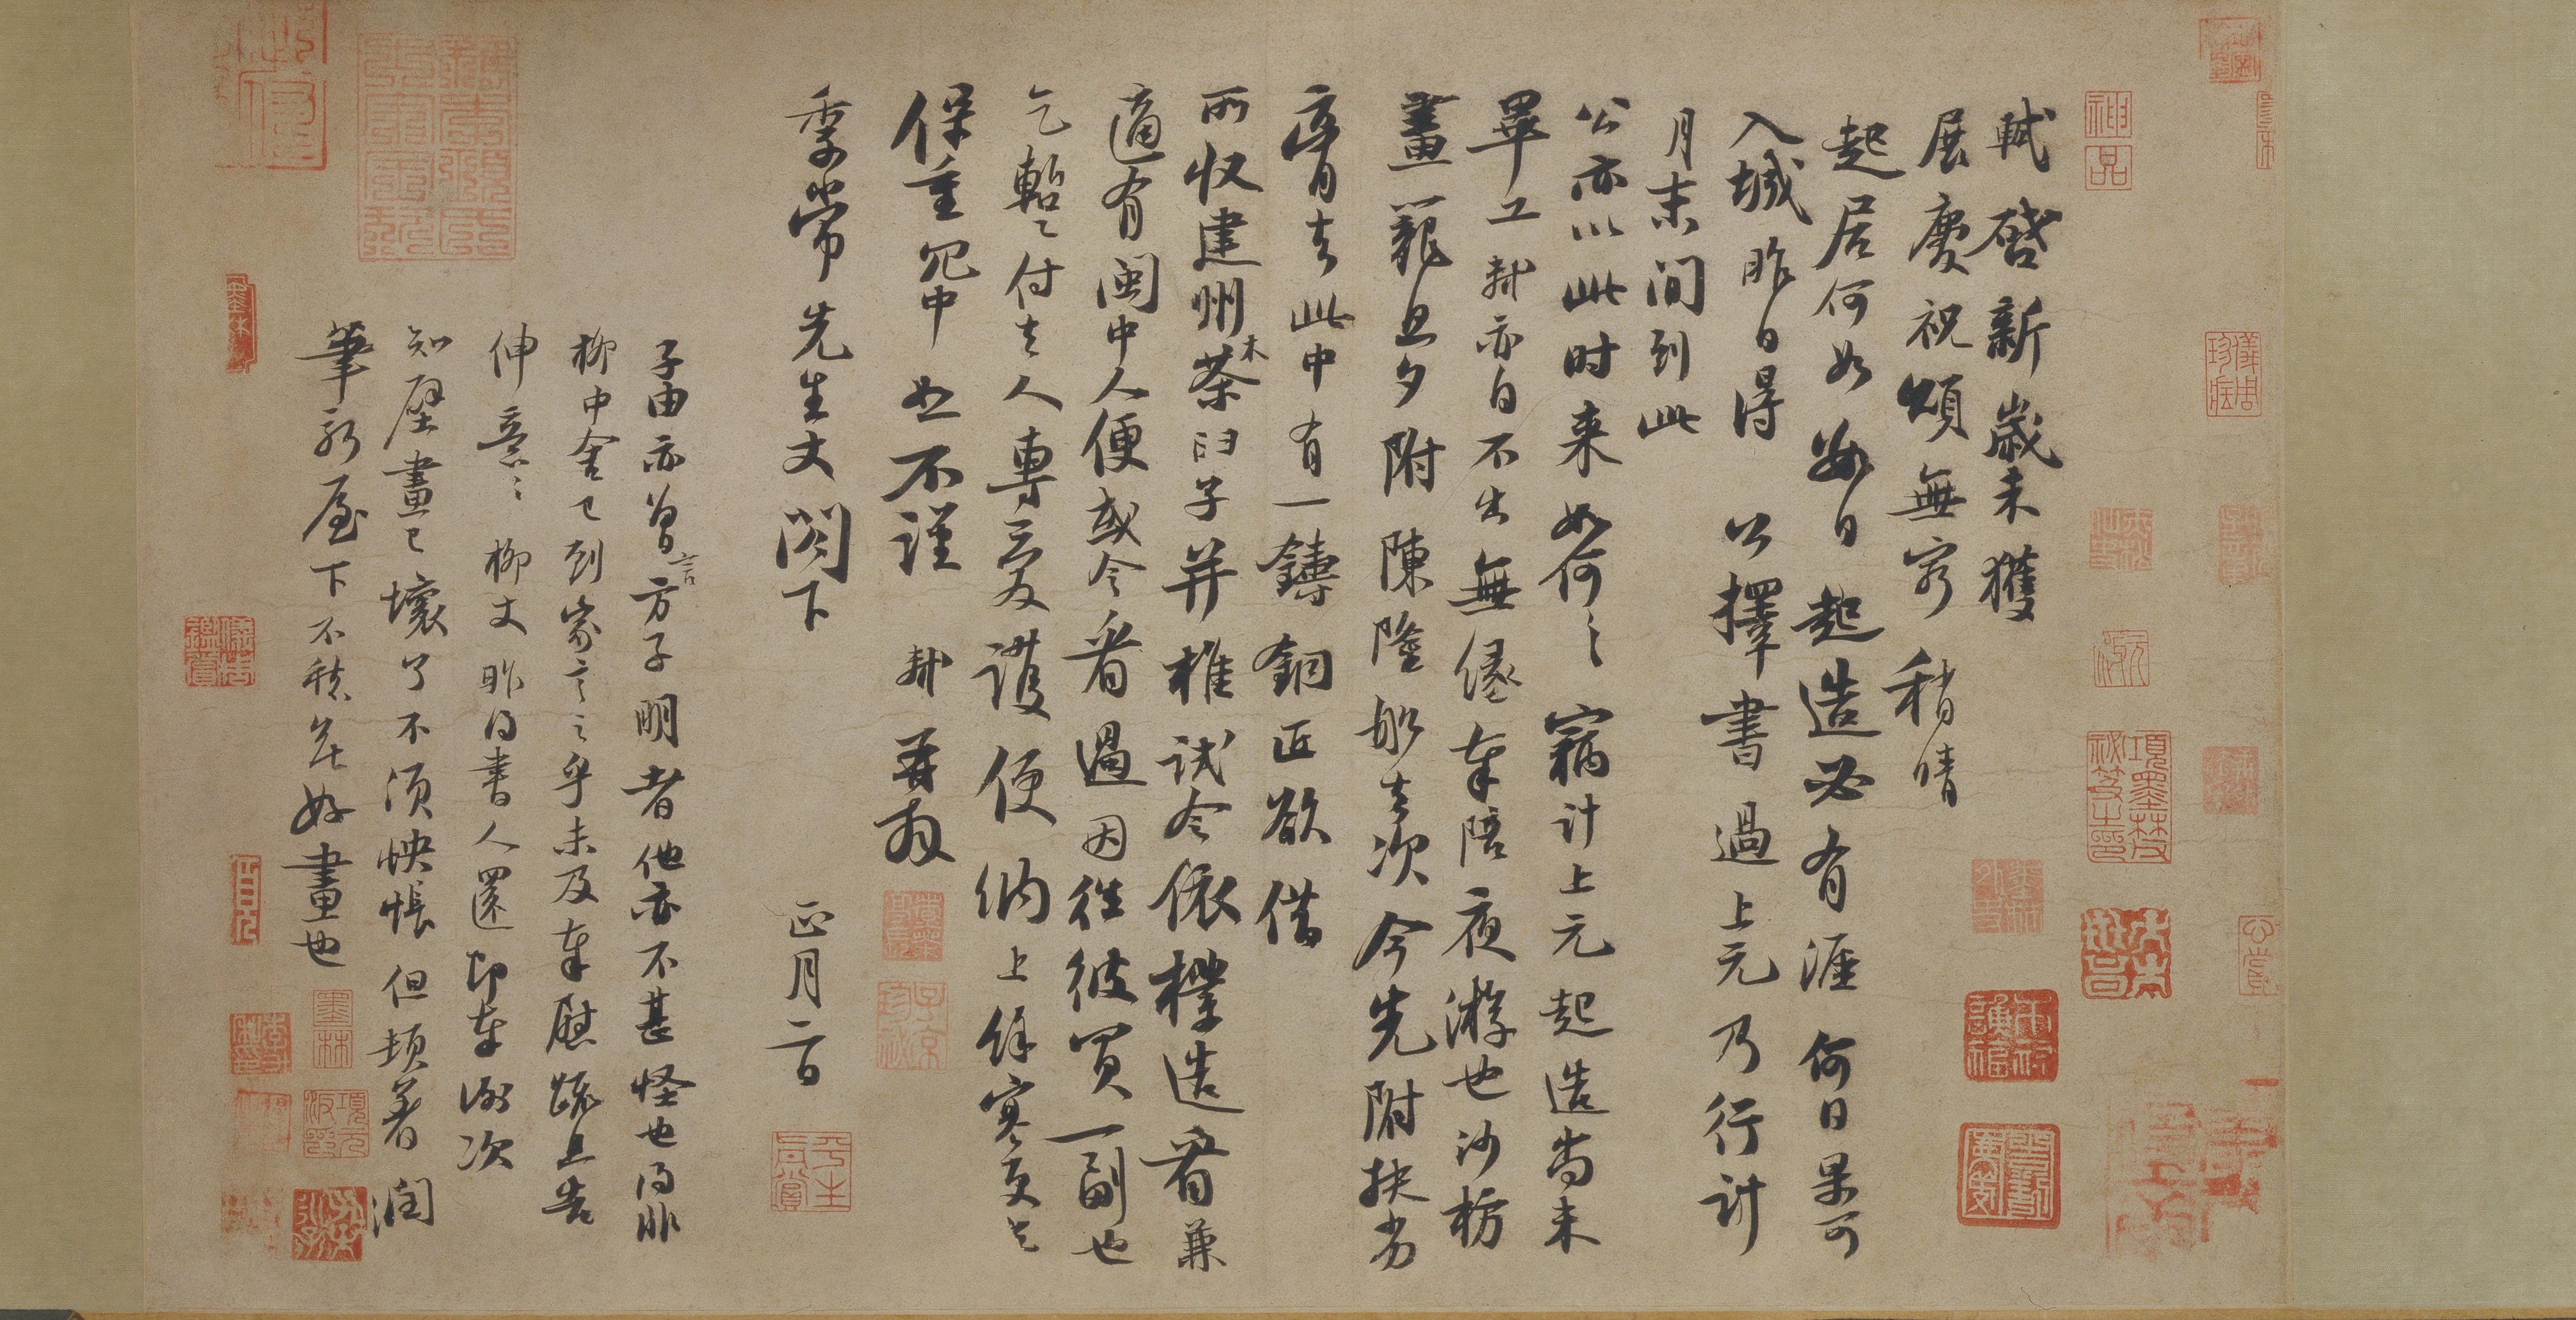 軾啓新歲未獲
展慶祝頌無窮稍晴
起居何如數日起造必有涯何日果可
入城昨日得公擇書過上元乃行計
月末間到此
公亦以此時来如何ミ竊計上元起造尚未
畢工軾亦自不出無緣奉陪夜游也沙枋
畫籠旦夕附陳隆船去次今先附扶劣
膏去此中有一鑄銅匠欲借
所收建州木茶臼子并椎試令依樣造看兼
適有閩中人便或令看過因往彼買一副也
乞暫付去人專愛護便納上餘寒更乞
保重冗中恕不謹軾再拜
季常先生丈閣下正月二日
子由亦曾言方子明者他亦不甚怪也得非
柳中舍已到家言之乎未及奉慰疏且告
伸意ミ柳丈昨得書人還即奉謝次
知壁畫已壞了不須怏悵但頓著潤
筆新屋下不愁無好畫也
神
品
平生
真賞
子京
珍秘
墨林